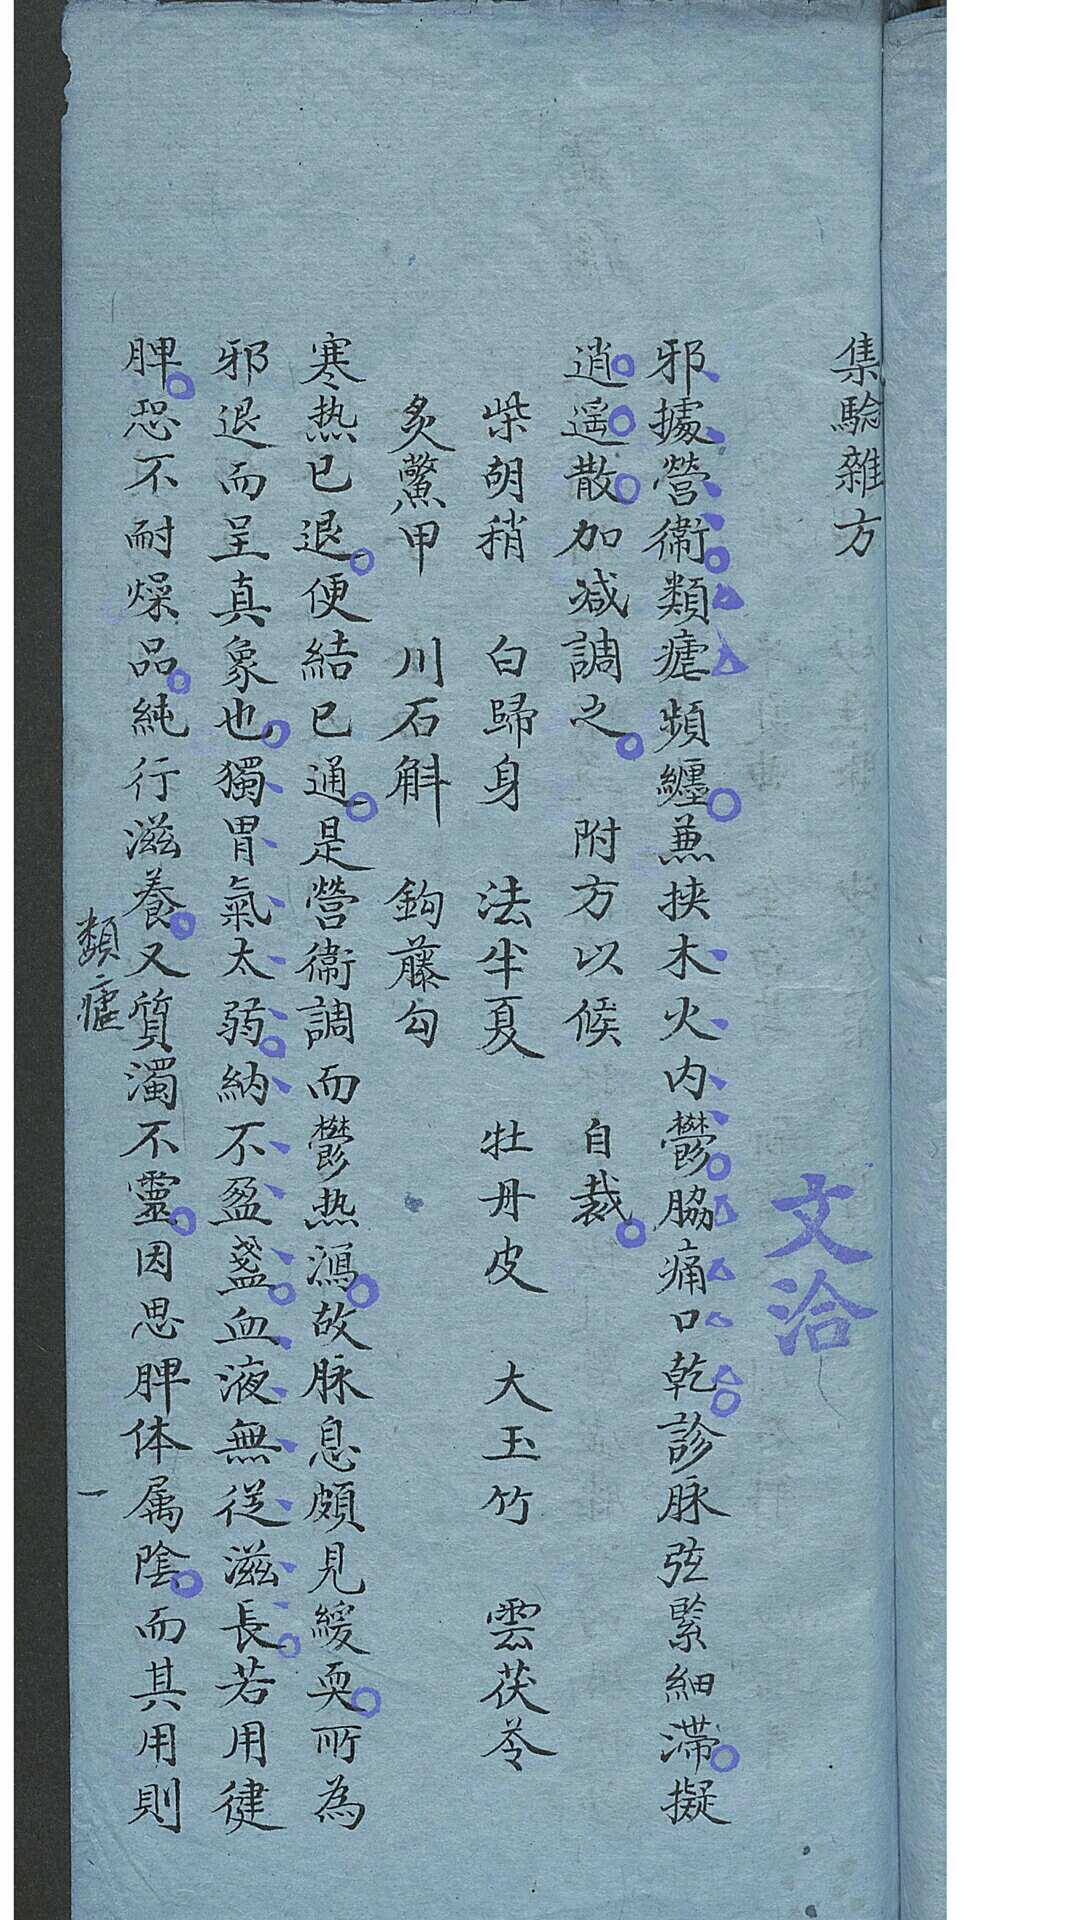 集驗雜方
文洽
邪據營衛類瘧頻纏兼挾木火内鬱脇痛口乾診脉弦緊細滯擬
逍遥散加减調之 附方以候 自裁
柴胡稍 白歸身 法半夏 牡丹皮 大玉竹 雲茯苓
炙鱉甲 川石斛 鈎藤勾
寒热已退便結已通是營衛調而鬱热瀉故脉息頗見緩耎所為
邪退而呈真象也獨胃氣太弱納不盈盞血液無從滋長若用健
脾恐不耐燥品純行滋養又質濁不靈因思脾体属陰而其用則
類瘧
一